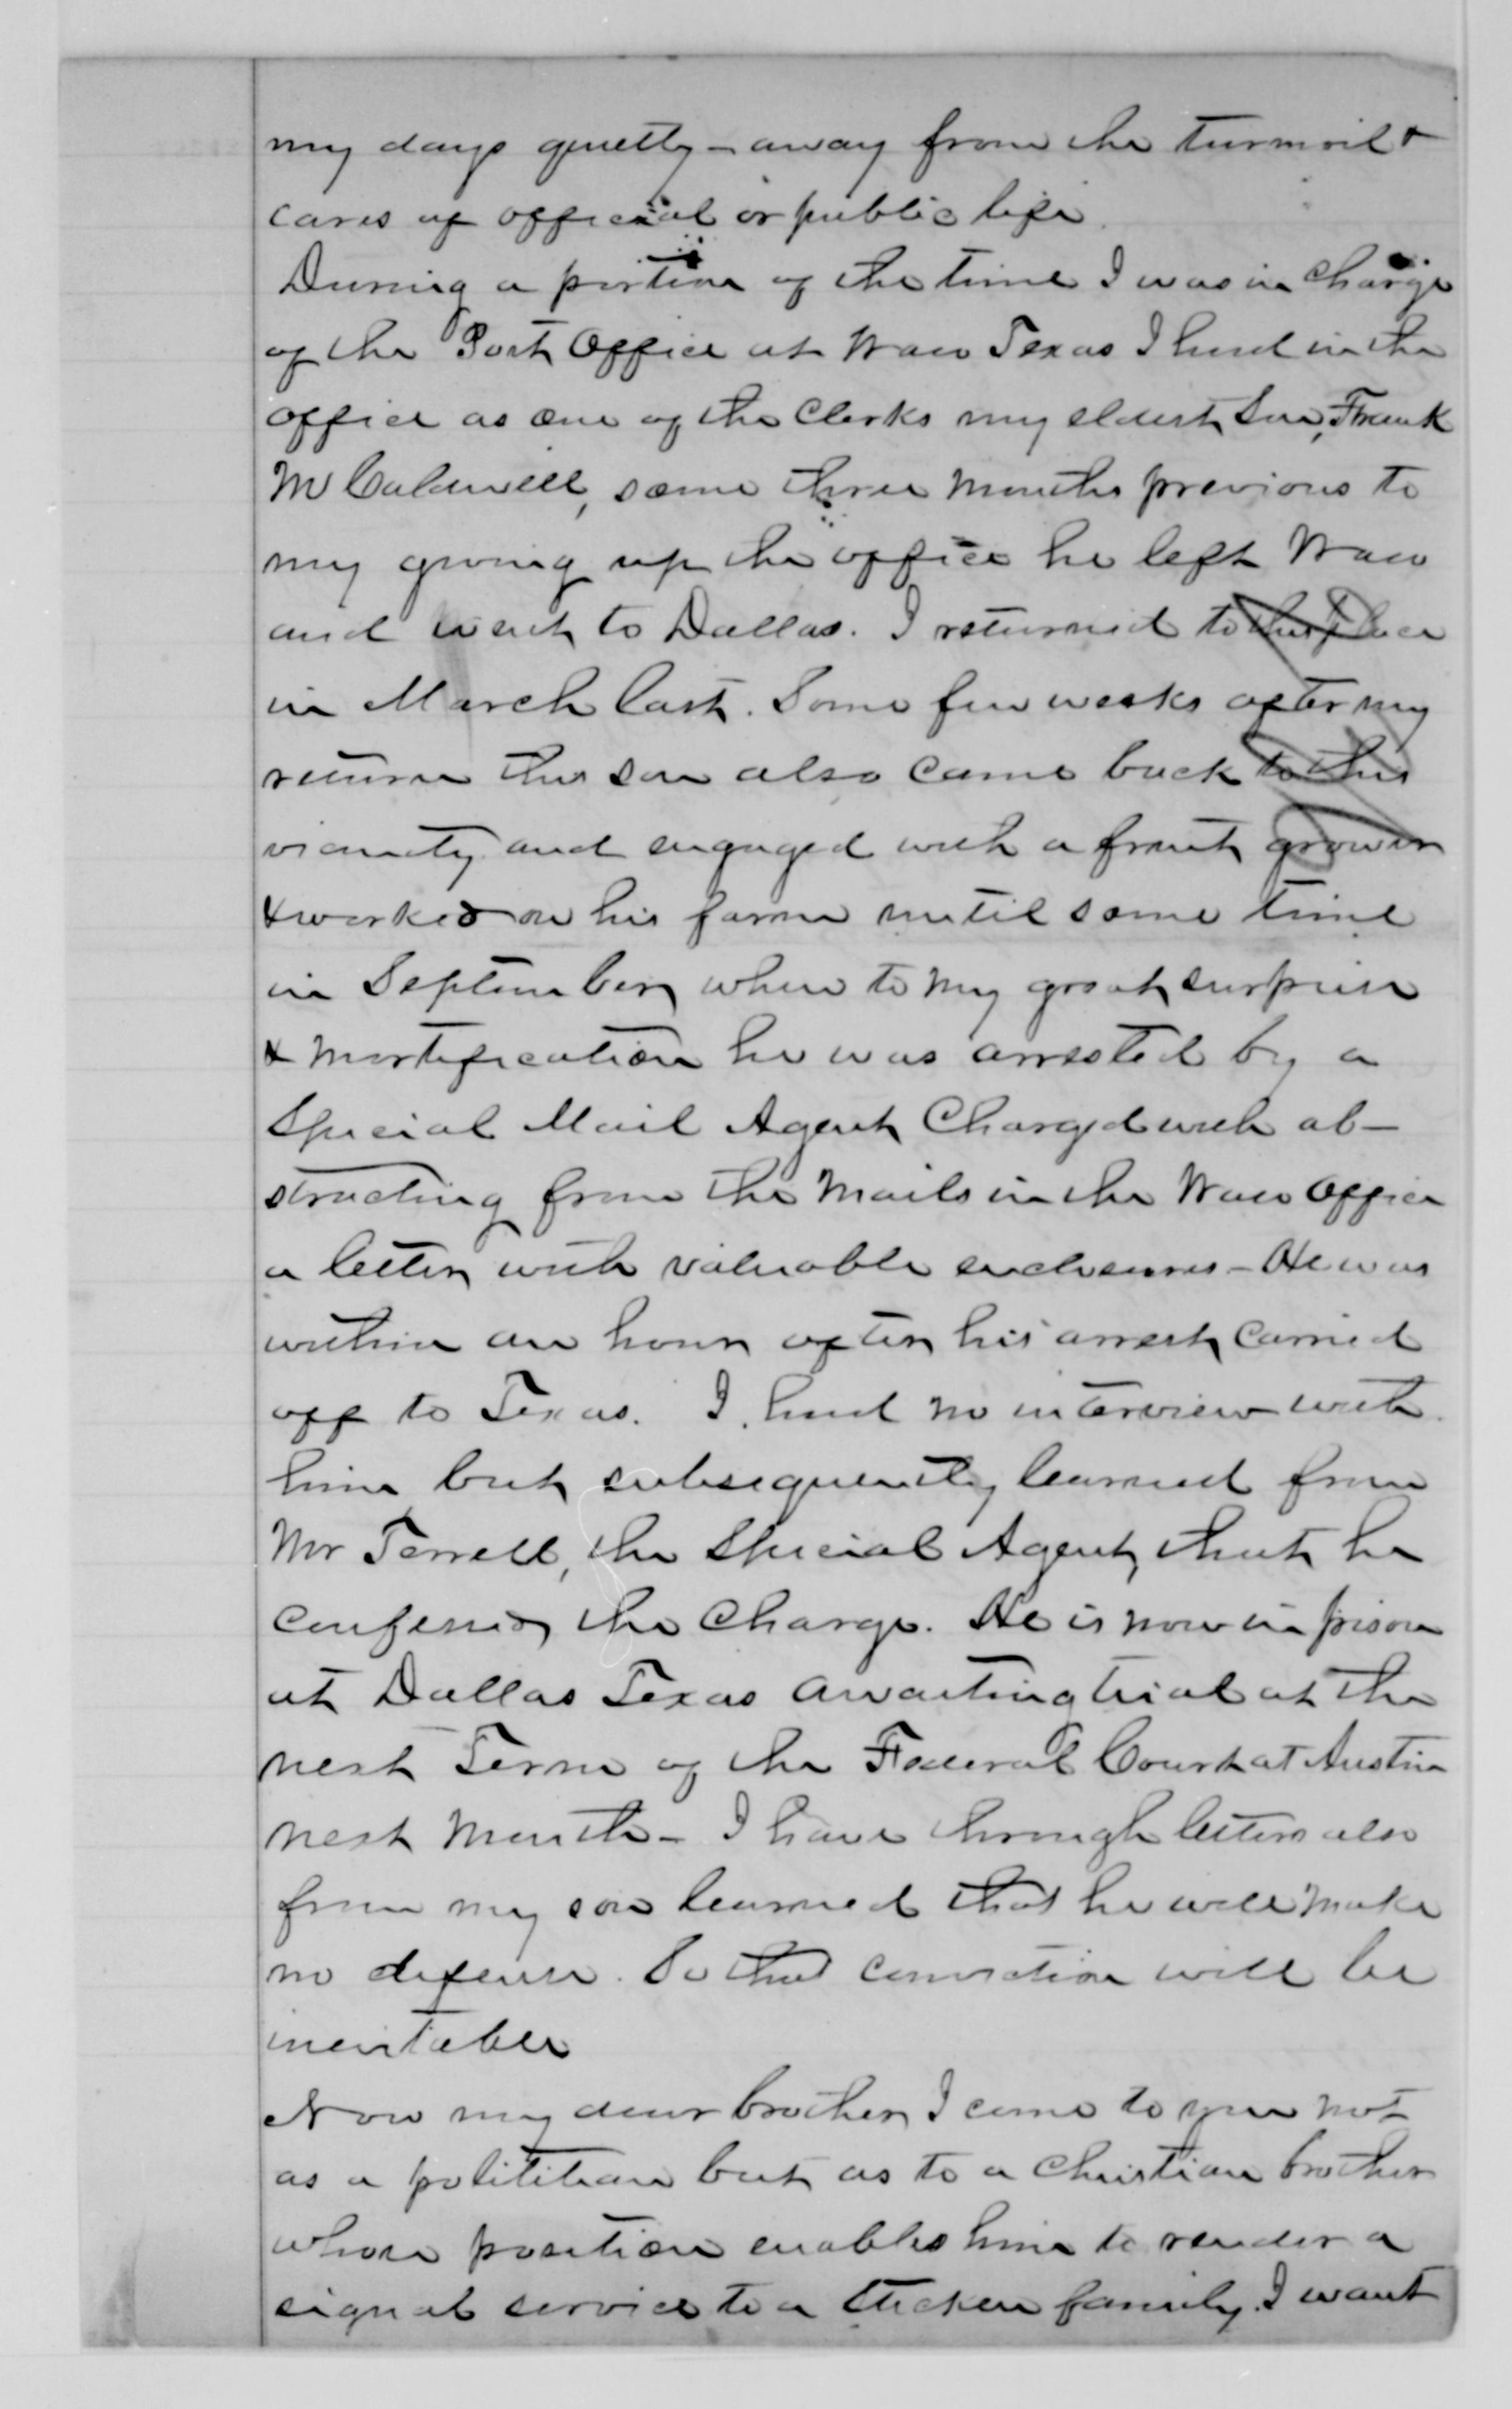 my days quietly - away from the turmoil &
cares of official or public life.
During a portion of the time I was in charge
of the Post Office at Waco Texas I had in the
office as one of the Clerks my eldest son, Frank
M Caldwell, some three months previous to
my giving up the office he left Waco
and went to Dallas. I returned to this place
in March last. Some few weeks after my
return this son also came back to this
vicinity and engaged with a fruit grower
& worked on his farm until some time
in September, when to my great surprise
& mortification he was arrested by a
Special Mail Agent Charged with ab-
structing from the mails in the Waco Office
a letter with valuable enclosures - He was
within an hour after his arrest carried
off to Texas. I had no interview with
him but subsequently learned from
Mr Terrell, the Special Agent, that he
confessed the Charge. He is now in prison
at Dallas Texas awaiting trial at the
next Term of the Federal Court at Austin
next Month - I have through letters also
from my son learned that he will make
no defense. So that conviction will be
inevitable
Now my dear brother I come to you not
as a polititian but as to a Christian brother
whose position enables him to render a
signal service to a stricken family. I want